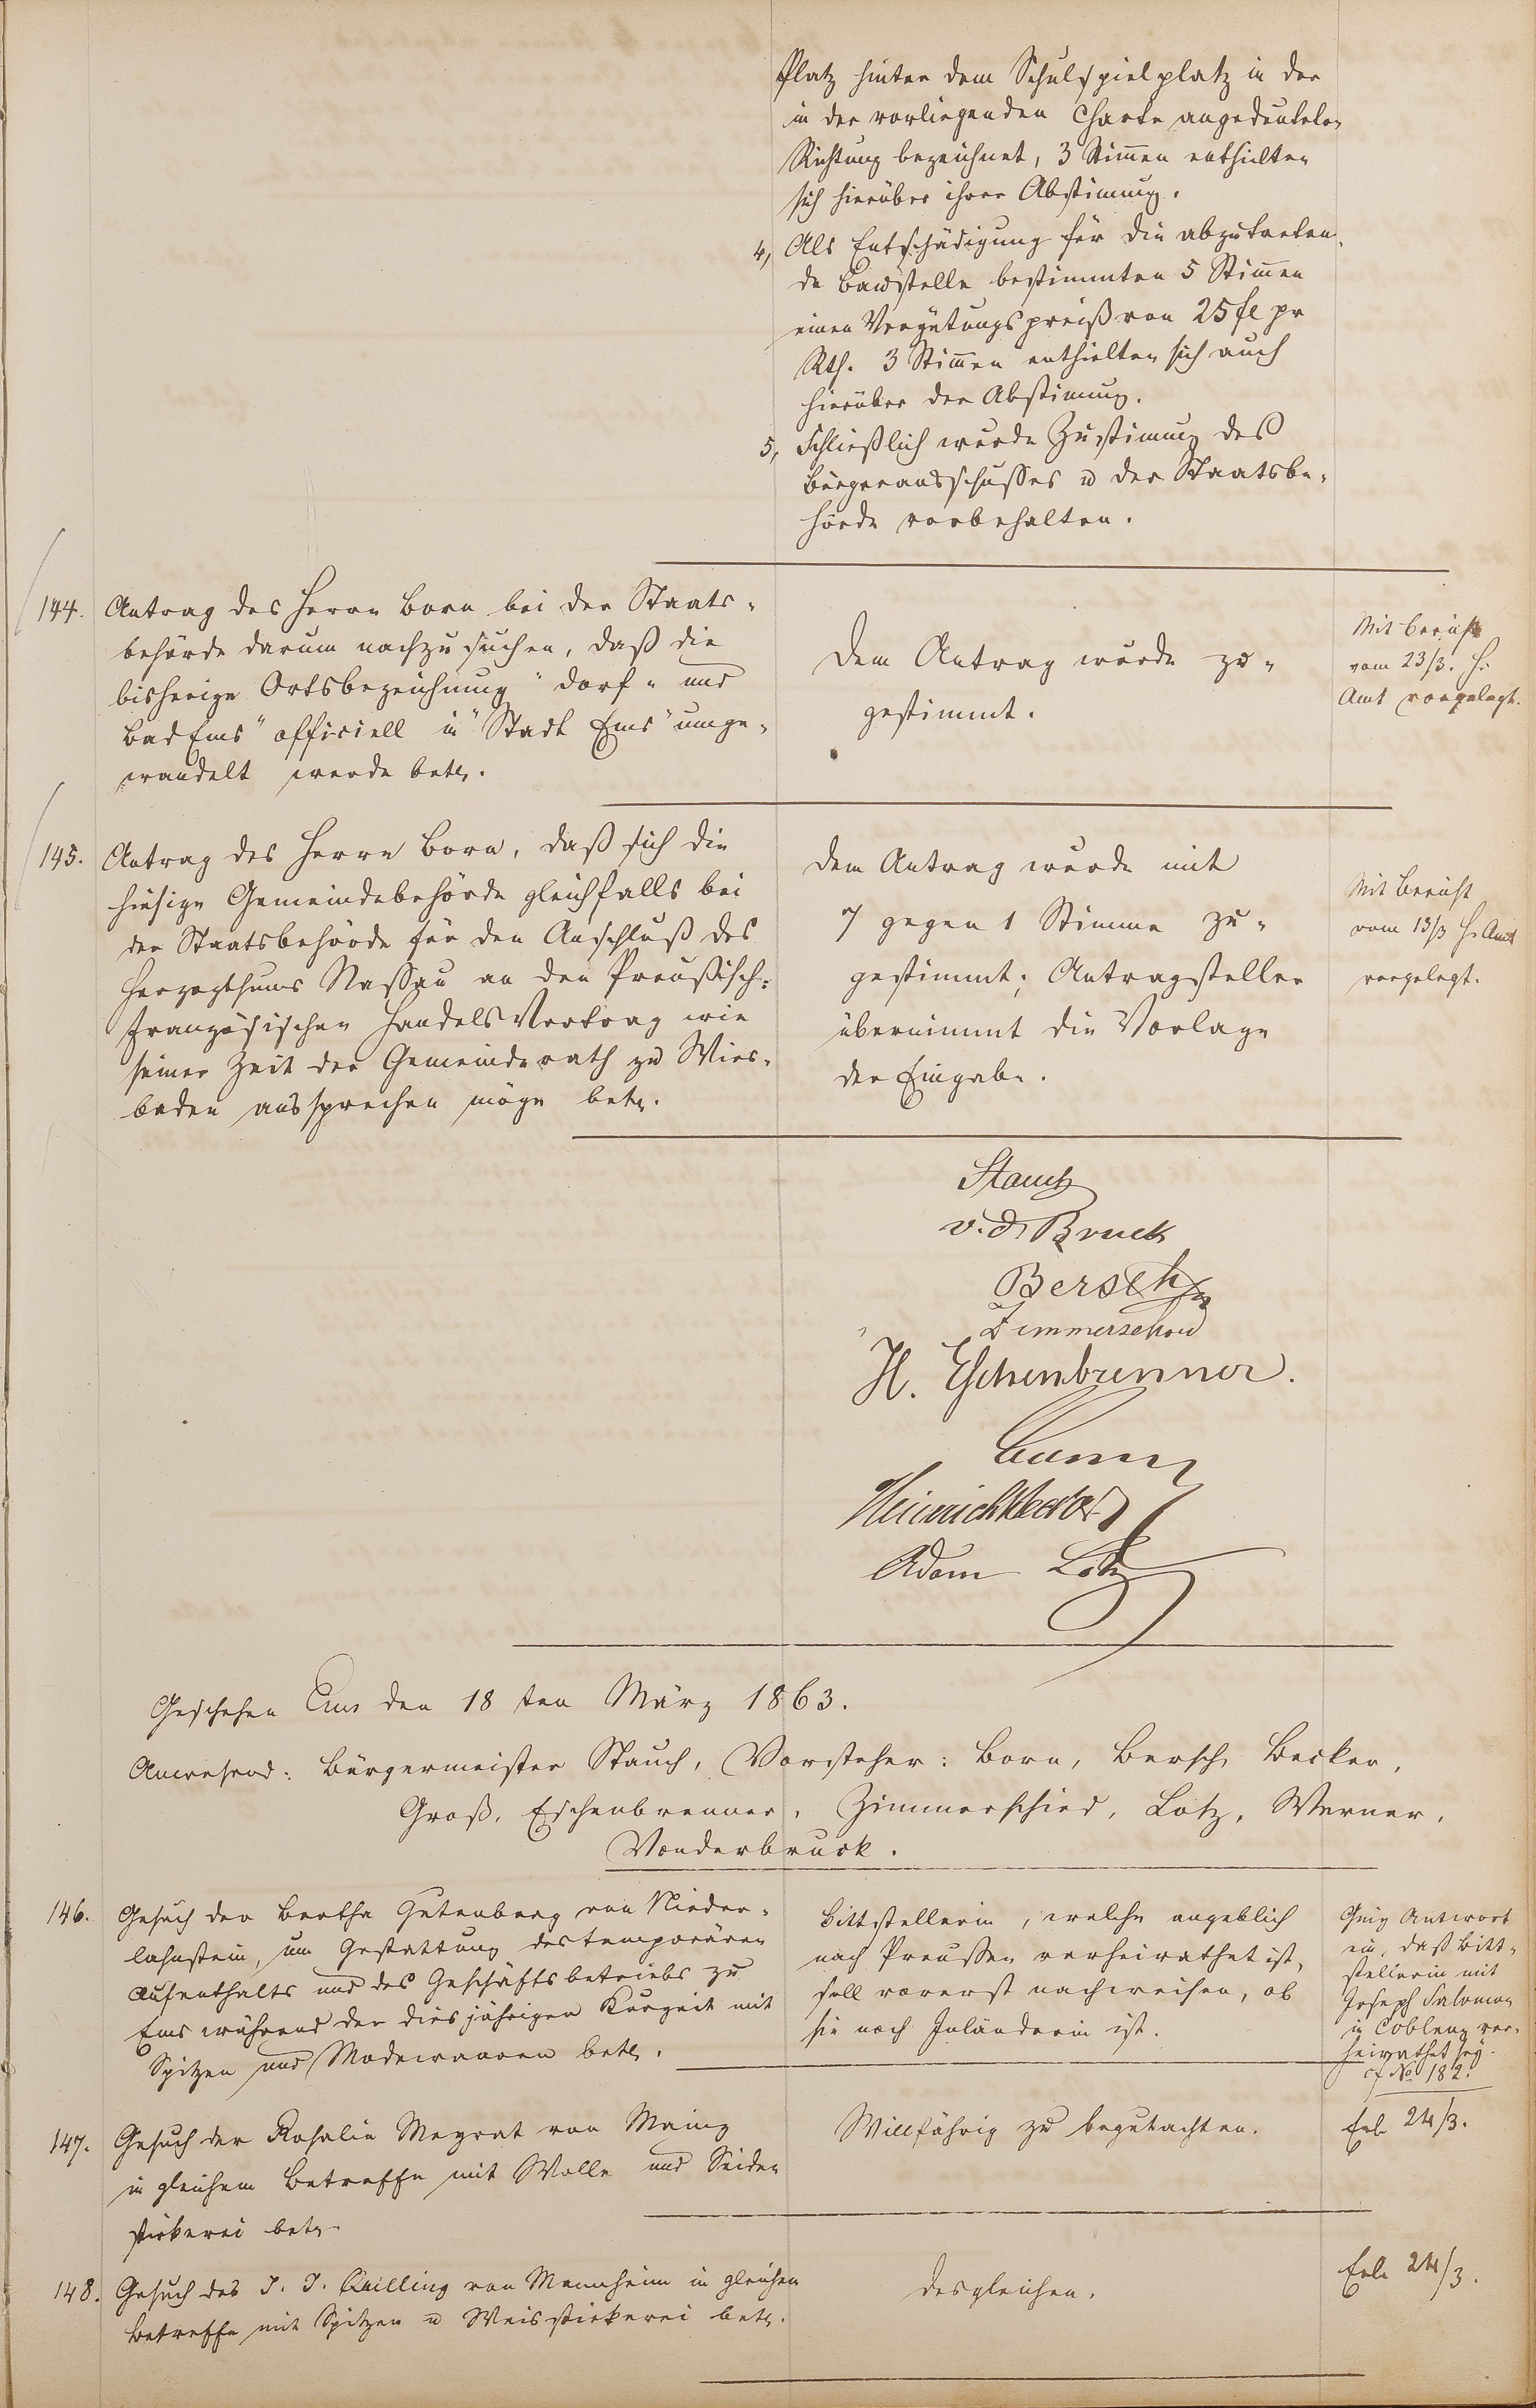 Platz hinter dem Schulspielplatz in der
in der vorliegenden Charte angedeuteten
Richtung bezeichnet, 3 Stimmen enthielten
sich hierüber ihrer Abstimung.
4, Als Entschädigung für die abzutreten-
de Baustelle bestimmten 5 Stimmen
einen Vergütungspreiß von 25 fl pr
Rth. 3 Stimmen enthielten sich auch
hierüber der Abstimung.
5, Schließlich wurde Zustimung des
Bürgerausschusses u der Staatsbe-
hörde vorbehalten.
144. Antrag des Herrn Born bei der Staats-
behörde darum nachzusuchen, daß die
bisherige Ortsbezeichnung "Dorf- und
Bad Ems" officiell in "Stadt Ems" umge-
wandelt werde betr.
Dem Antrag wurde zu-
gestimmt.
Mit Bericht
vom 23/3. H.
Amt vorgelegt.
145. Antrag des Herrn Born, daß sich die
hiesige Gemeindebehörde gleichfalls bei
der Staatsbehörde für den Anschluß des
Herzogthums Nassau an den Preußisch-
französischen Handels Vertrag wie
seiner Zeit der Gemeinderath zu Wies-
baden aussprechen möge betr.
Dem Antrag wurde mit
7 gegen 1 Stimme zu-
gestimmt; Antragsteller
übernimmt die Vorlage
der Eingabe.
Mit Bericht
vom 13/3 H. Amt
vorgelegt.
Stauch
v. d. Bruck
Bersch
Zimmerschied
H. Eschenbrenner.
Heinrich Becker
Adam Lotz
Geschehen Ems den 18ten März 1863.
Anwesend: Bürgermeister Stauch, Vorsteher: Born, Bersch, Becker,
Groß, Eschenbrenner, Zimmerschied, Lotz, Werner,
Vonderbruck.
146. Gesuch der Bertha Gutenberg von Nieder-
lahnstein, um Gestattung des temporären
Aufenthalts und des Geschäftsbetriebs zu
Ems während der diesjährigen Kurzeit mit
Spitzen und Modewaaren betr.
Bittstellerin, welche angeblich
nach Preussen verheirathet ist,
soll vorerst nachweisen, ob
sie noch Inländerin ist.
Ging Antwort
ein, daß Bitt-
stellerin mit
Joseph Salomon
in Coblenz ver-
heirathet sey.
cf No 182.
147. Gesuch der Rosalie Megrat von Mainz
in gleichem Betreffe mit Wolle und Seiden
stickerei betr.
Willfährig zu begutachten.
Erl. 24/3.
148. Gesuch des J. J. Quilling von Mannheim in gleichem
Betreffe mit Spitzen u Weisstickerei betr.
desgleichen.
Erl. 24/3.